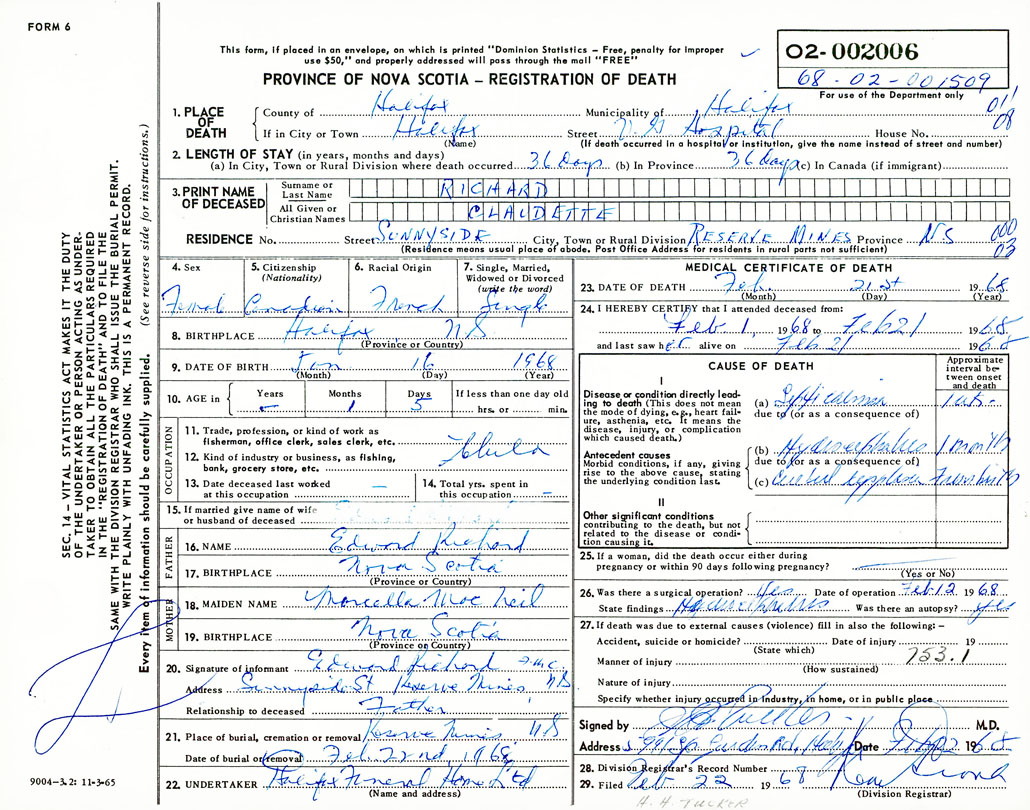 FORM 6
This form, if placed in an envelope, on which is printed "Dominion Statistics – Free, penalty for improper
use $50," and properly addressed will pass through the mail "FREE"
O2-002006
68-02-001509
For use of the Department only
PROVINCE OF NOVA SCOTIA – REGISTRATION OF DEATH
011
08
1. PLACE OF DEATH
County of Halifax Municipality of Halifax
If in City or Town Halifax Street V. G Hospital House No.
(Name) (If death occurred in a hospital or institution, give the name instead of street and number)
2. LENGTH OF STAY (in years, months and days)
(a) In City, Town or Rural Division where death occurred 36 days (b) In Province 36 days (c) In Canada (if immigrant)
3. PRINT NAME OF DECEASED
Surname or Last Name RICHARD
All Given or Christian Names CLAUDETTE
RESIDENCE No. Street SUNNYSIDE City, Town or Rural Division RESERVE MINES Province NS
000
03
(Residence means usual place of abode. Post Office Address for residents in rural parts not sufficient)
SEC. 14 – VITAL STATISTICS ACT MAKES IT THE DUTY
OF THE UNDERTAKER OR PERSON ACTING AS UNDER-
TAKER TO OBTAIN ALL THE PARTICULARS REQUIRED
IN THE "REGISTRATION OF DEATH" AND TO FILE THE
SAME WITH THE DIVISION REGISTRAR WHO SHALL ISSUE THE BURIAL PERMIT.
WRITE PLAINLY WITH UNFADING INK. THIS IS A PERMANENT RECORD.
Every item of information should be carefully supplied. (See reverse side for instructions.)
4. Sex
5. Citizenship (Nationality)
6. Racial Origin
7. Single, Married, Widowed or Divorced (write the word)
Femal Canadian French Single
8. BIRTHPLACE Halifax N.S
(Province or Country)
9. DATE OF BIRTH Jan 16 1968
(Month) (Day) (Year)
10. AGE in
Years Months Days If less than one day old
– 1 5 hrs. or min.
OCCUPATION
11. Trade, profession, or kind of work as
fisherman, office clerk, sales clerk, etc.
12. Kind of industry or business, as fishing,
bank, grocery store, etc.
Child
13. Date deceased last worked
at this occupation –
14. Total yrs. spent in
this occupation –
15. If married give name of wife
or husband of deceased
FATHER
16. NAME Edward Richard
17. BIRTHPLACE Nova Scotia
(Province or Country)
MOTHER
18. MAIDEN NAME Marcella Mac Neil
19. BIRTHPLACE Nova Scotia
(Province or Country)
20. Signature of informant Edward Richard
Address Sunnyside St Reserve Mines NS
Relationship to deceased Father
21. Place of burial, cremation or removal Reserve Mines NS
Date of burial or removal Feb. 22nd, 1968
22. UNDERTAKER Halifax Funeral Home Ltd
(Name and address)
9004–3.2: 11-3-65
MEDICAL CERTIFICATE OF DEATH
23. DATE OF DEATH Feb. 21st 1968
(Month) (Day) (Year)
24. I HEREBY CERTIFY that I attended deceased from:
Feb 1, 1968 to Feb 21 1968
and last saw her alive on Feb. 21 1968
CAUSE OF DEATH
Approximate interval between onset and death
I
Disease or condition directly leading to death (This does not mean the mode of dying, e.g., heart failure, asthenia, etc. It means the disease, injury, or complication which caused death.)
(a) Septicaemia 1 wk.
due to (or as a consequence of)
Antecedent causes
Morbid conditions, if any, giving rise to the above cause, stating the underlying condition last.
(b) Hydrocephalus 1 month
due to (or as a consequence of)
(c) Cerebral From birth
II
Other significant conditions
contributing to the death, but not
related to the disease or condi-
tion causing it.
25. If a woman, did the death occur either during
pregnancy or within 90 days following pregnancy?
(Yes or No)
26. Was there a surgical operation? Yes Date of operation Feb. 12 1968
State findings Hydrocephalus Was there an autopsy? Yes
27. If death was due to external causes (violence) fill in also the following: –
Accident, suicide or homicide? Date of injury 19
(State which)
753.1
Manner of injury
(How sustained)
Nature of injury
Specify whether injury occurred in industry, in home, or in public place
Signed by M.D.
Address Date
28. Division Registrar's Record Number
29. Filed Feb 22 1968
(Division Registrar)
H. H. TUCKER